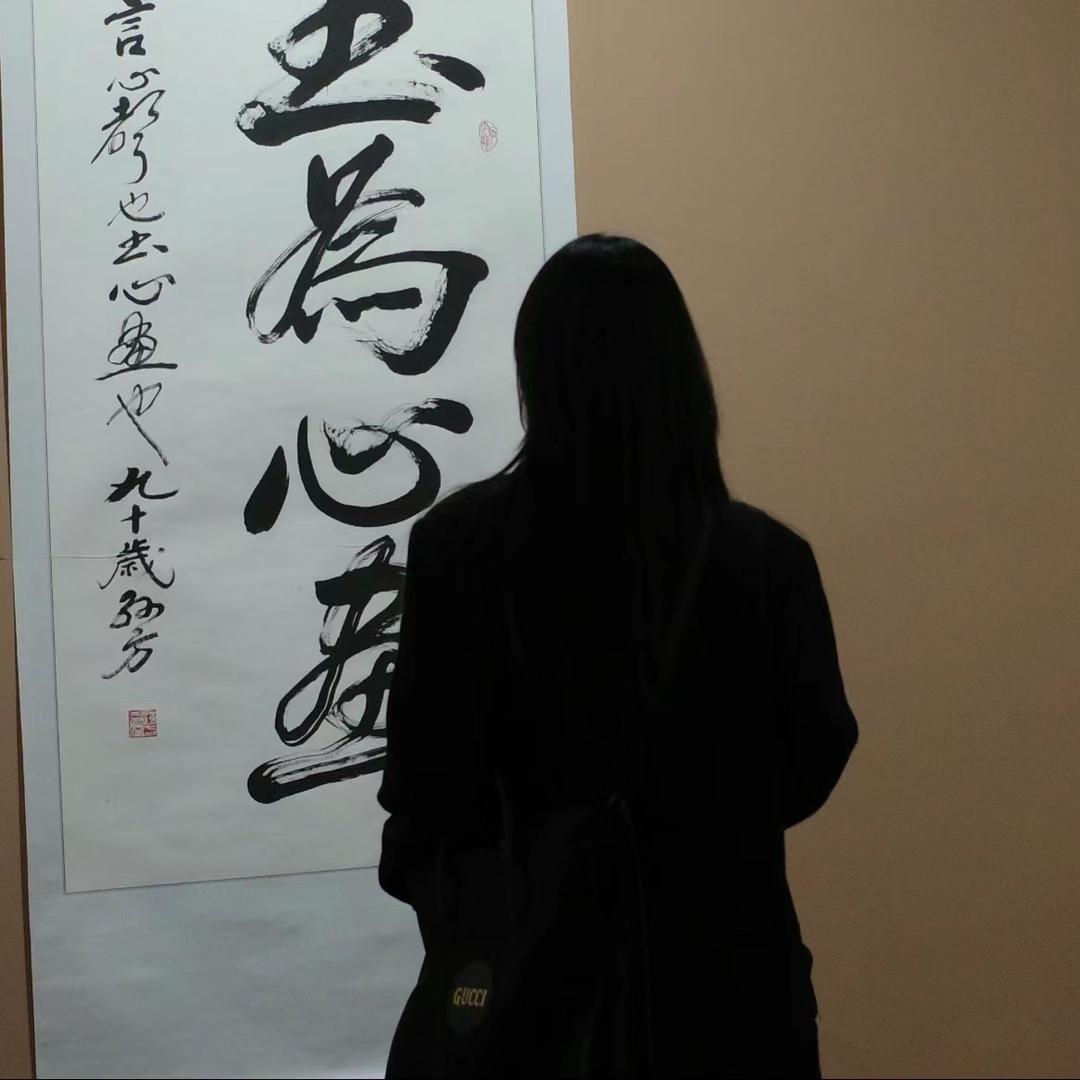 書為心畫
言心聲也書心畫也九十歲孫方
GUCCI